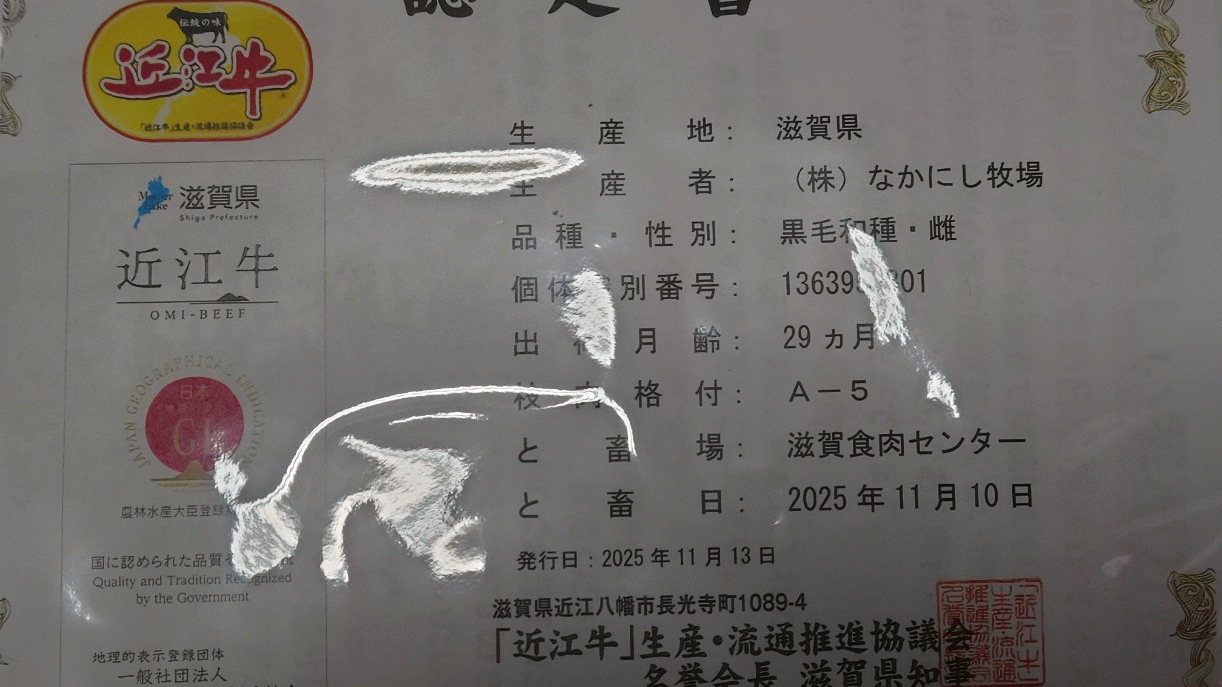 認定書
伝統の味
近江牛
「近江牛」生産・流通推進協議会
Mother Lake
滋賀県
Shiga Prefecture
近江牛
OMI-BEEF
JAPAN GEOGRAPHICAL INDICATION
日本
GI
農林水産大臣登録
国に認められた品質
Quality and Tradition Recognized
by the Government
地理的表示登録団体
一般社団法人
生産地：滋賀県
生産者：（株）なかにし牧場
品種・性別：黒毛和種・雌
個体 別番号：
出 月齢：29ヵ月
枝肉格付：A－5
と畜場：滋賀食肉センター
と畜日：2025年11月10日
発行日：2025年11月13日
滋賀県近江八幡市長光寺町1089-4
「近江牛」生産・流通推進協議会
名誉会長 滋賀県知事